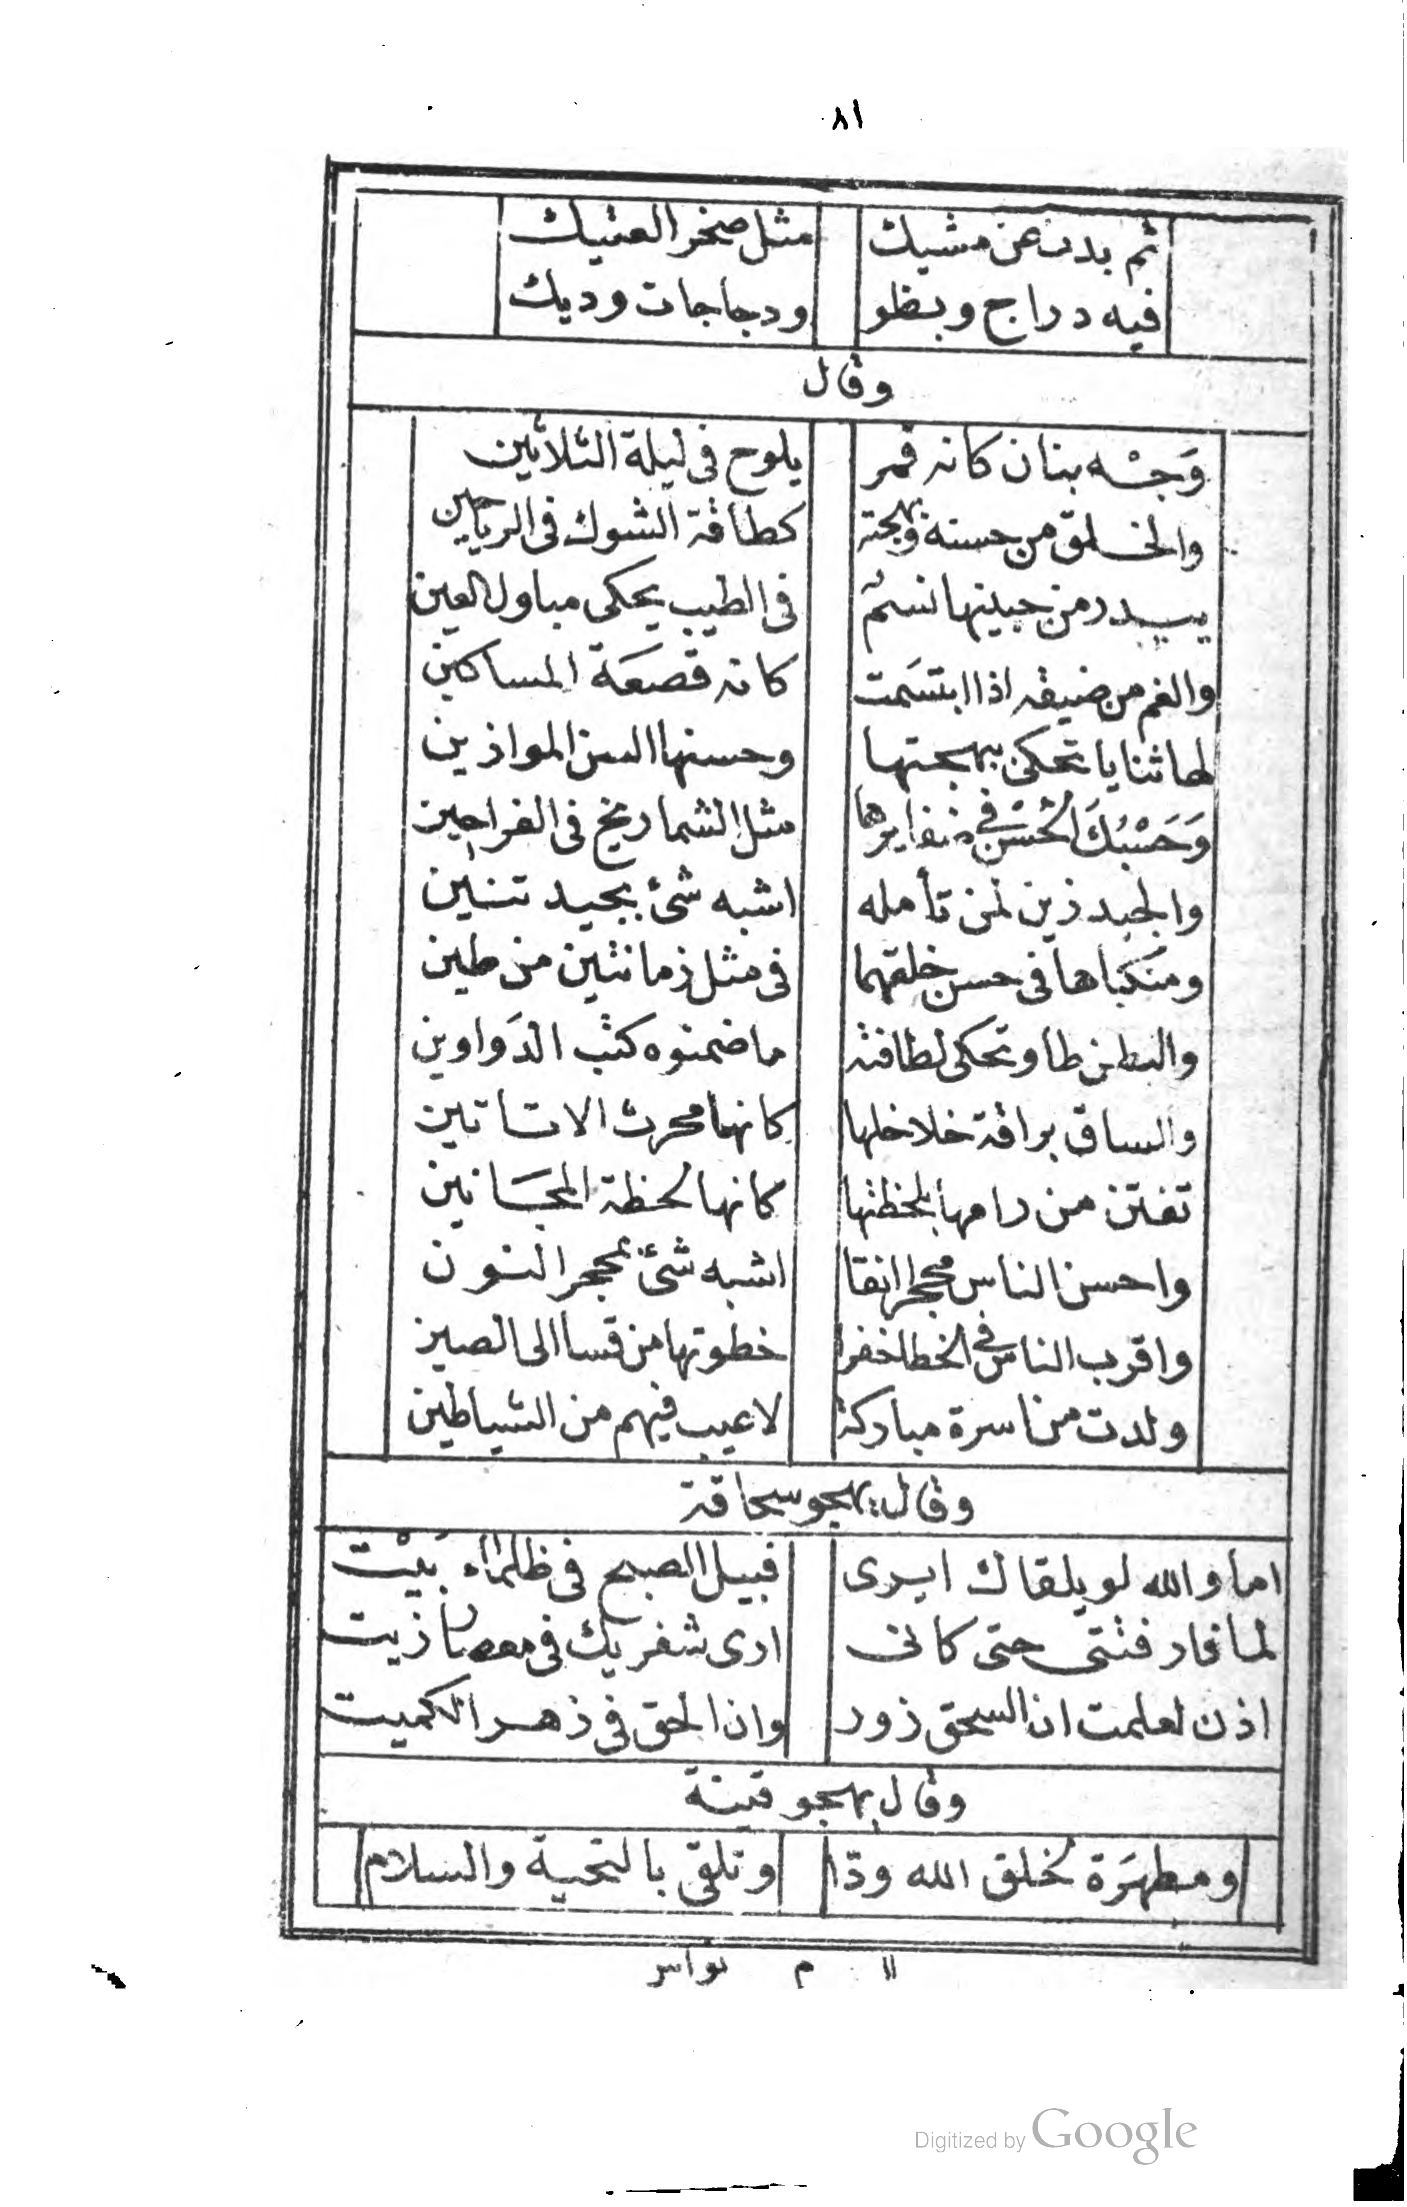 ٨١
ثم بدت عن مشيك مثل صخر العتيك
فيه دراج وبطو ودجاجات وديك
وقال
وَجْه بنان كانه قمر يلوح فى ليلة الثلاثين
والخلق من حسنه وبهجته كطاقة الشوك فى الرياحين
من جبينها نسم فى الطيب يحكى مباول العين
والفم من ضيقه اذا ابتسَمت كانه قصعَة المساكين
لها ثنايا تحكى ببهجتها وحسنها السن الموازين
وَحَسْبُكَ الحُسْن في ضفايرها مثل الشماريخ فى العراجين
والجيد زين لمن تأمله اشبه شئ بجيد تنين
ومنكباها فى حسن خلقهما فى مثل زمانتين من طين
والبطن طاو تحكى لطافته ما ضمنوه كتب الدَواوين
والساق براقة خلاخلها كانها محرث الاتاتين
تفتن من رامها بلحظتها كانها لحظة المجَانين
واحسن الناس محجرا نقا اشبه شئ بمحجر النون
واقرب الناس في الخطا خفرا خطوتها من قسا الى الصين
ولدت من اسرة مباركة لا عيب فيهم من الشياطين
وقال يهجو سحاقة
اما والله لو يلقاك ايرى قبيل الصبح فى ظلماء بَيْت
لما فارقتنى حتى كانى ارى شفريك فى معصار زيت
اذن لعلمت ان السحق زور وان الحق في زهر الكميت
وقال يهجو قينة
ومظهرَة لخلق الله ودّا وتلقى بالتحية والسلام
١١ م نواس
Digitized by Google